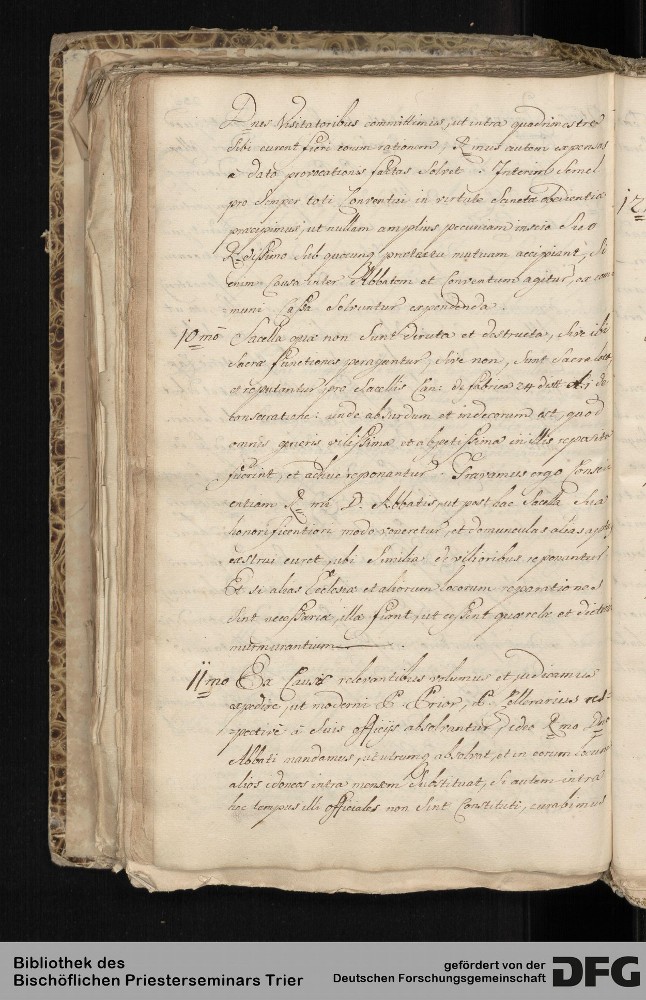 Dnis Visitatoribus committimus, ut intra quadrimestre
sibi curent fieri eorum rationem; Rmus autem expensas
à dato provocationis factas solvet. Interim semel
pro semper toti Conventui in virtute sanctae obedientiae
praecipimus, ut nullam amplius pecuniam inscio suo
Rdissimo sub quocunq praetextu mutuam accipiant, si
enim causa inter Abbatem et Conventum agitur, ex com¬
muni Cassa solvuntur expendenda.
10mo Sacella quae non sunt diruta et destructa, sive ibi
sacrae functiones peragantur, sive non, sunt sacra loca
et reputantur pro sacellis Can: de fabrica 24 dist de
consecratione: unde absurdum et indecorum est, quod
omnis generis vilissima et abjectissima in illis reposita
fuerint, et adhuc reponantur. Gravamus ergo Consci¬
entiam Rmi D. Abbatis, ut post hac Sacella sua
honorificentiori modo veneretur, et domunculas alias aptas
exstrui curet, ubi similia et viliora reponantur
Et si alias Ecclesiae et aliorum locorum reparationes
sint necessariae, illae fiant, ut cessent quaerelae et dicteria
murmurantium.
11mo Ex Causis relevantibus volumus et judicamus
expedire, ut moderni P. Prior, P. Cellerarius res¬
pective à suis officijs absolvantur, ideo Rmo Dno
Abbati mandamus, ut utrumq absolvat, et in eorum locum
alios idoneos intra mensem substituat, si autem intra
hoc tempus illi officiales non sint constituti, curabimus
12
Bibliothek des
Bischöflichen Priesterseminars Trier
gefördert von der
Deutschen Forschungsgemeinschaft
DFG